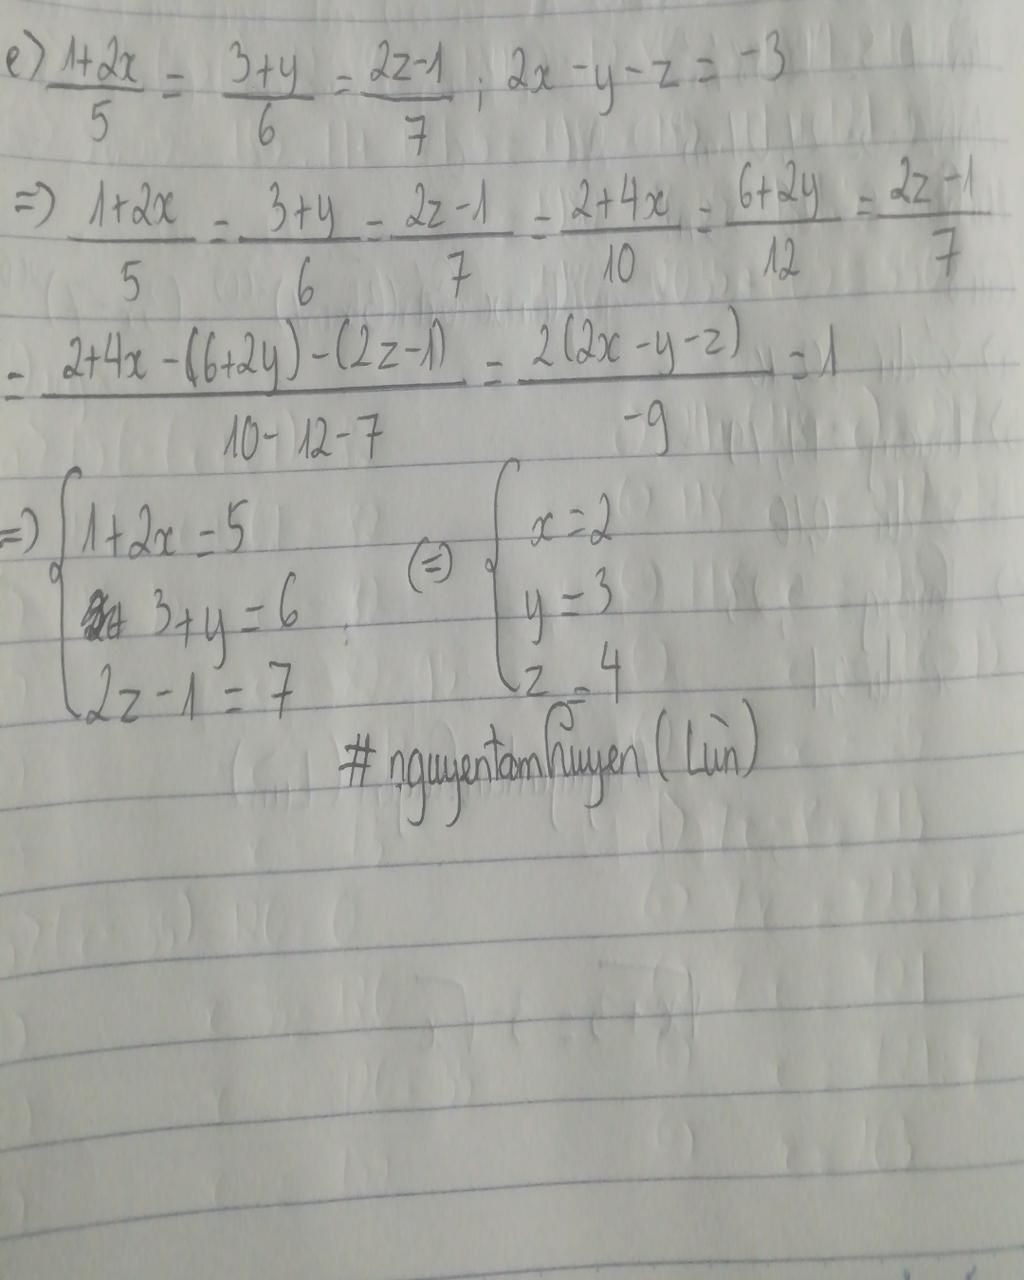 e) 1+2x/5 = 3+y/6 = 2z-1/7 ; 2x - y - z = -3
=> 1+2x/5 = 3+y/6 = 2z-1/7 = 2+4x/10 = 6+2y/12 = 2z-1/7
= 2+4x-(6+2y)-(2z-1)/10-12-7 = 2(2x-y-z)/-9 = 1
=> { 1+2x = 5 (=) { x = 2
3+y = 6 y = 3
2z-1 = 7 z = 4
# nguyentamhuyen (Lùn)